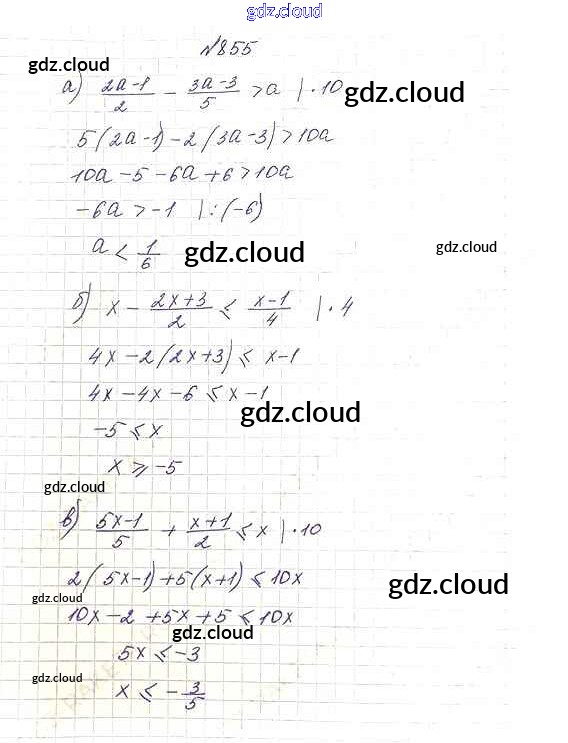 gdz.cloud
№855
gdz.cloud
а) (2a-1)/2 - (3a-3)/5 > a |·10
gdz.cloud
5(2a-1)-2(3a-3)>10a
10a-5-6a+6>10a
-6a>-1 |:(-6)
a < 1/6
gdz.cloud
gdz.cloud
б) x - (2x+3)/2 ⩽ (x-1)/4 |·4
4x-2(2x+3)⩽ x-1
4x-4x-6⩽x-1
gdz.cloud
-5⩽x
x⩾-5
gdz.cloud
в) (5x-1)/5 + (x+1)/2 ⩽ x |·10
2(5x-1)+5(x+1)⩽10x
gdz.cloud
gdz.cloud
10x-2+5x+5⩽10x
gdz.cloud
5x⩽-3
gdz.cloud
x⩽-3/5